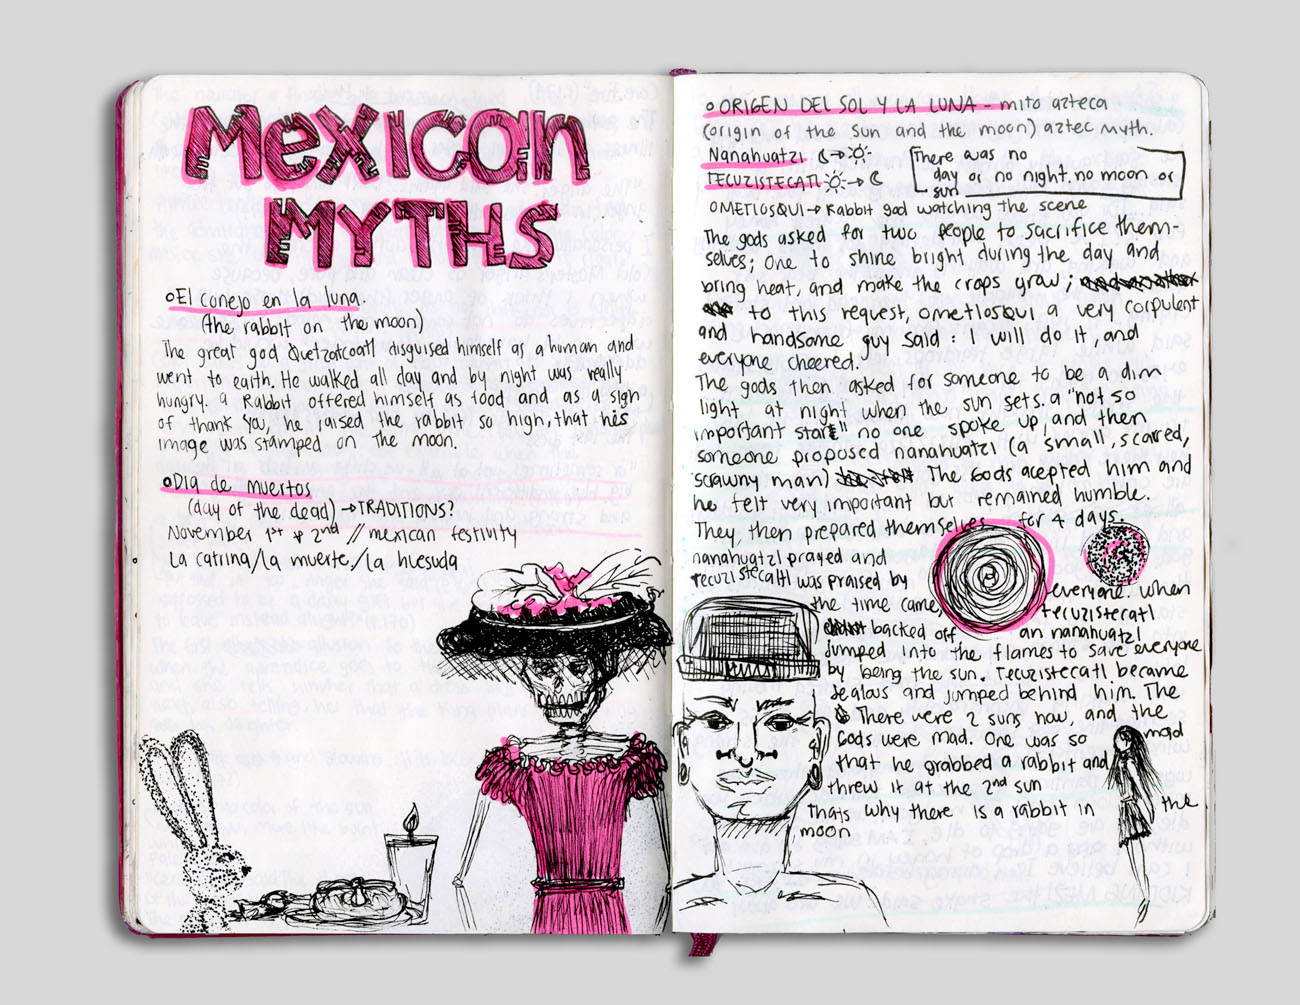 Mexican
MYTHS
El conejo en la luna.
(the rabbit on the moon)
The great god Quetzalcoatl disguised himself as a human and
went to earth. He walked all day and by night was really
hungry. a Rabbit offered himself as food and as a sign
of thank you, he raised the rabbit so high, that his
image was stamped on the moon.
Dia de muertos
(day of the dead) → TRADITIONS?
November 1st & 2nd // mexican festivity
La catrina/la muerte/la huesuda
ORIGEN DEL SOL Y LA LUNA - mito azteca
(origin of the sun and the moon) aztec myth.
Nanahuatzi
TECUZISTECATL
There was no
day or no night, no moon or
sun
OMETLOSQUI → Rabbit god watching the scene
The gods asked for two people to sacrifice them-
selves; One to shine bright during the day and
bring heat, and make the crops grow;
to this request, OMETLOSQUI a very corpulent
and handsome guy said: I will do it, and
everyone cheered.
The gods then asked for someone to be a dim
light at night when the sun sets. a "not so
important star" no one spoke up, and then
someone proposed nanahuatzi (a small, scarred,
scrawny man) The Gods acepted him and
he felt very important but remained humble.
They, then prepared themselves for 4 days.
nanahuatzi prayed and
Tecuzistecatl was praised by everyone. when
the time came, tecuzistecatl
backed off an nanahuatzi
jumped into the flames to save everyone
by being the sun. Tecuzistecatl became
jealous and jumped behind him. The
There were 2 suns now, and the
Gods were mad. One was so mad
that he grabbed a rabbit and
threw it at the 2nd sun
Thats why there is a rabbit in the
moon